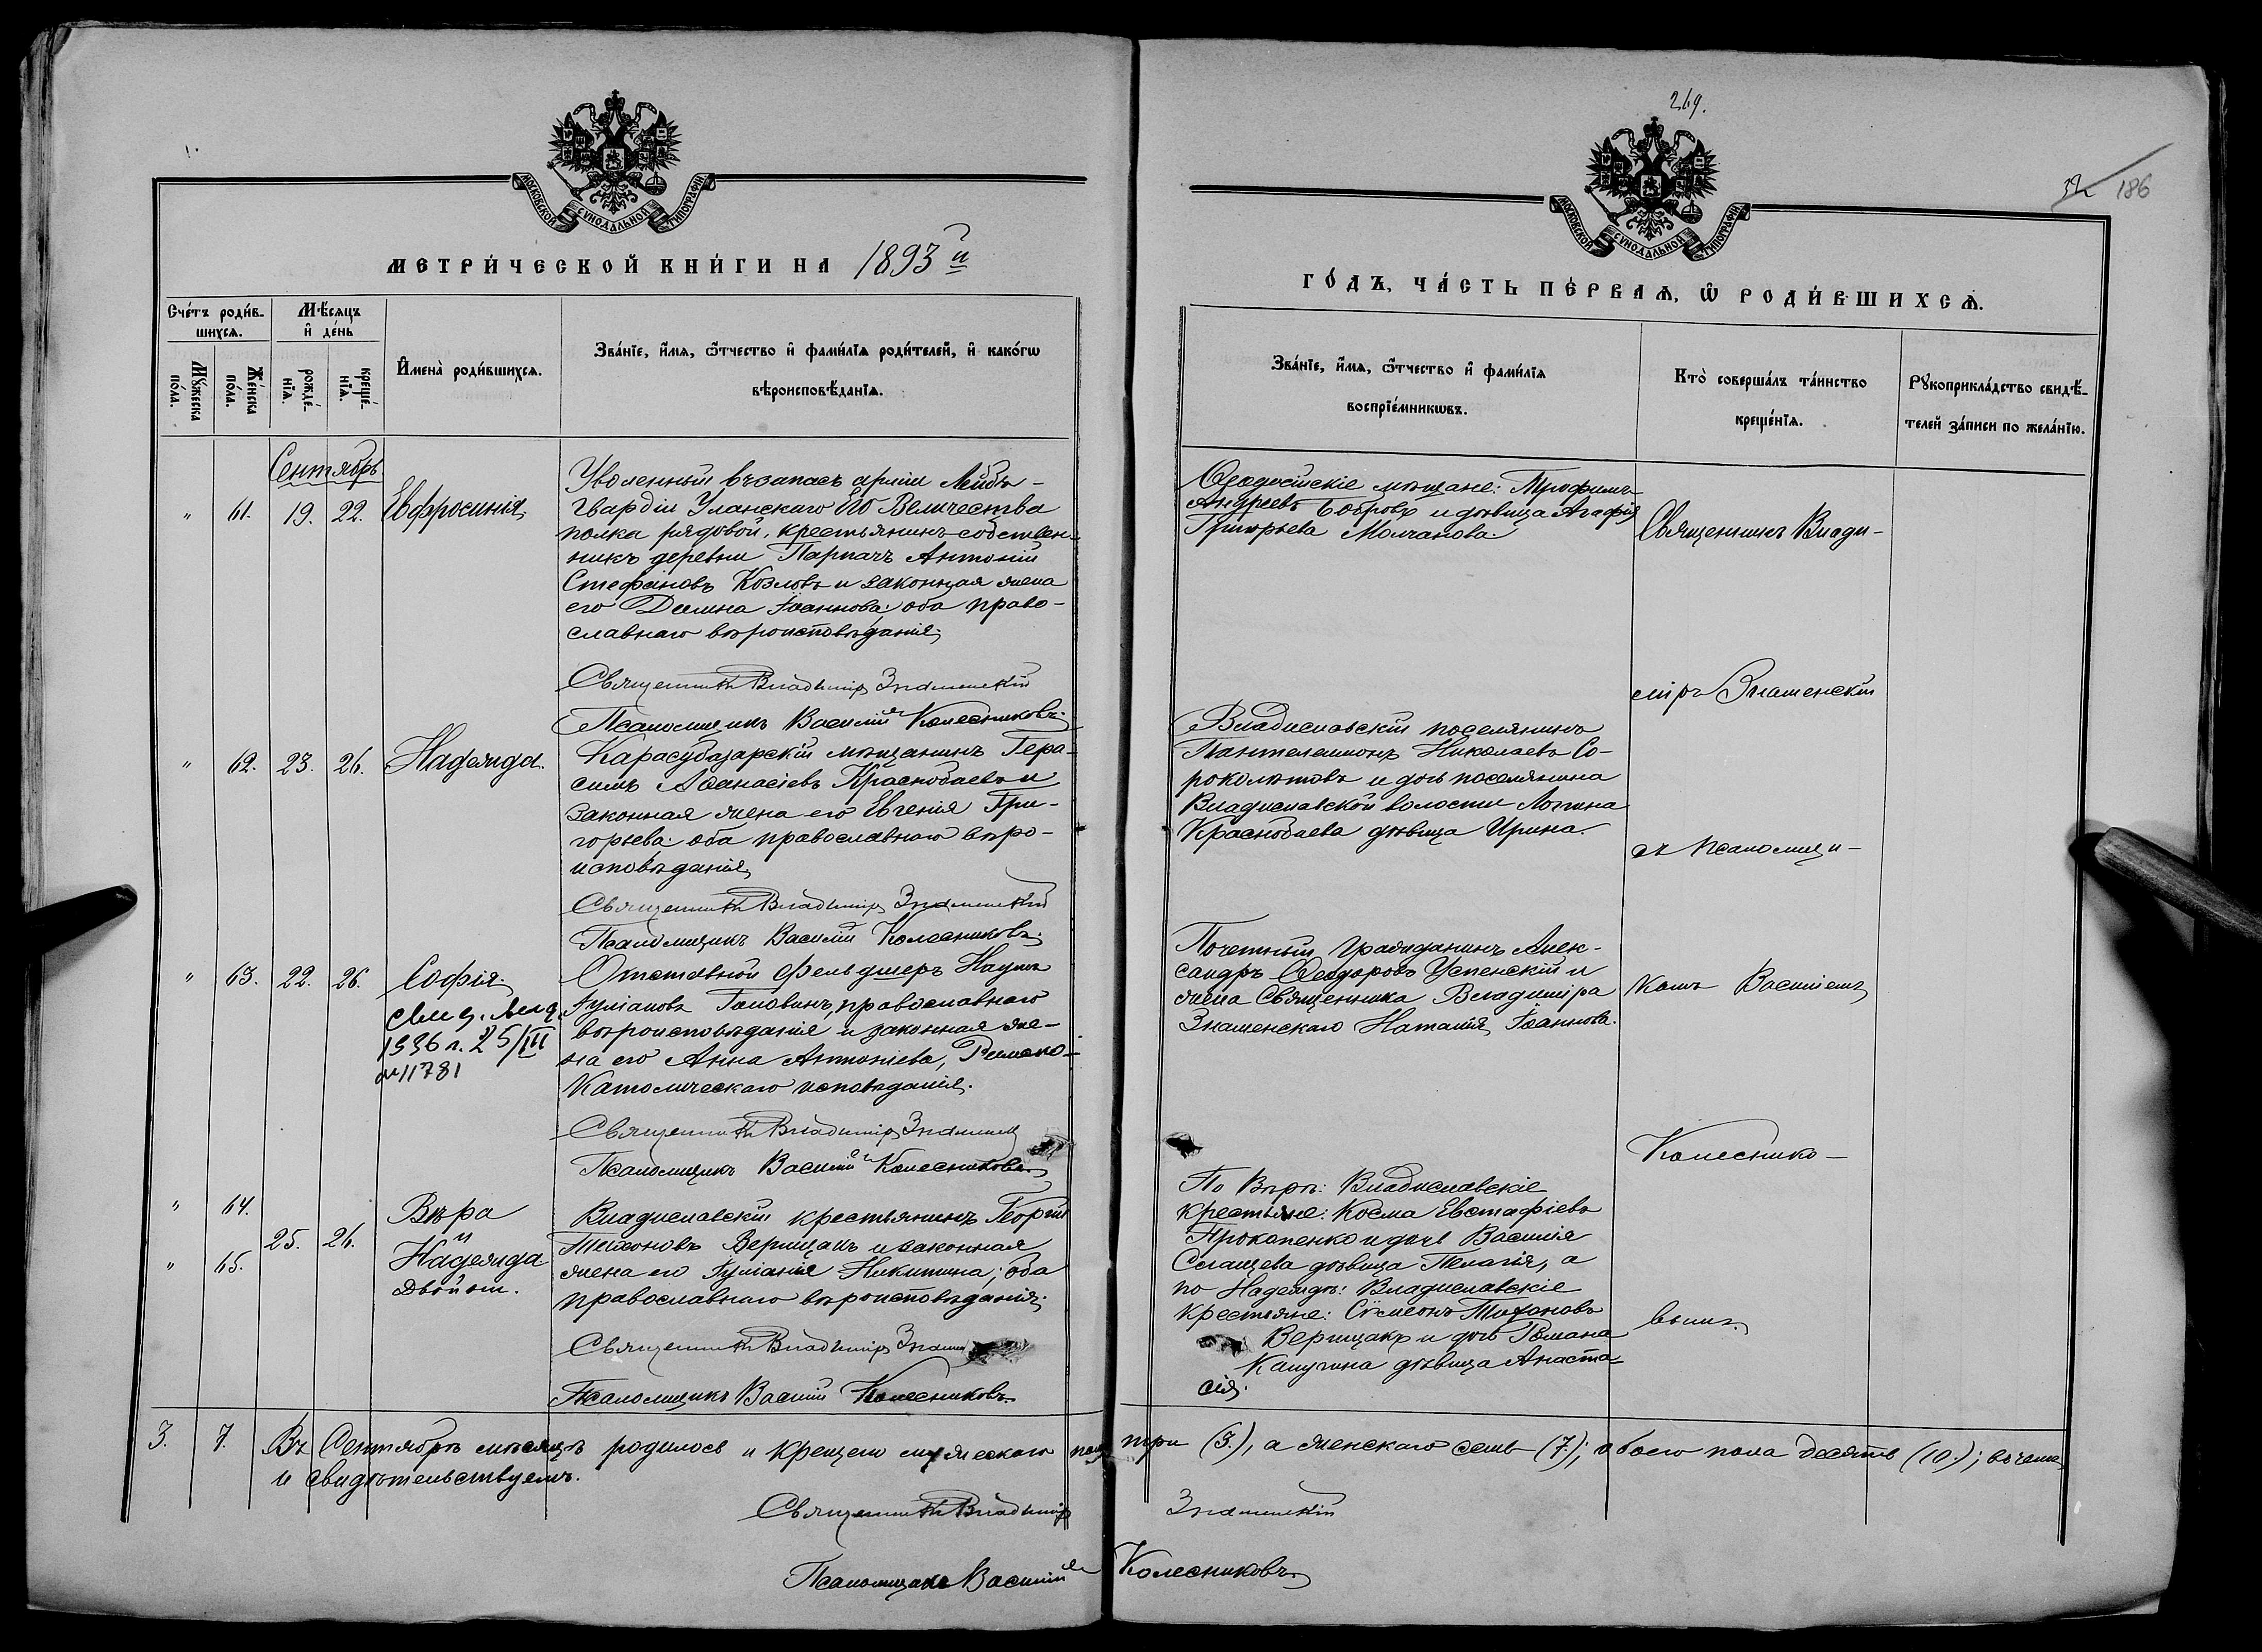 269.
186
МОСКОВСКОЙ СУНОДАЛЬНОЙ ТИПОГРАФІИ
МОСКОВСКОЙ СУНОДАЛЬНОЙ ТИПОГРАФІИ
МЕТРИ́ЧЕСКОЙ КНИ́ГИ НА 1893й
ГО́ДЪ, ЧА́СТЬ ПЕ́РВАѦ, Ѿ РОДИ́ВШИХСѦ.
Сче́тъ роди́в-
шихсѧ.
Мѣ́сѧцъ
и де́нь
Мꙋ́жеска по́ла.
Же́нска по́ла.
рожде́-нїѧ.
креще́-нїѧ.
Имена̀ роди́вшихсѧ.
Зва́нїе, и́мѧ, ѻ́тчество и фами́лїѧ роди́телей, и како́гѡ
вѣроисповѣ́данїѧ.
Зва́нїе, и́мѧ, ѻ́тчество и фами́лїѧ
воспрїе́мникѡвъ.
Кто̀ соверша́лъ та́инство
креще́нїѧ.
Рꙋкоприкла́дство свидѣ́-
телей за́писи по жела́нїю.
Сентябрь.
" 61. 19. 22. Евфросинія
Уволенный въ запасъ арміи Лейбъ-
Гвардіи Уланскаго Его Величества
полка рядовой, крестьянинъ-собствен-
никъ деревни Парпачъ Антоній
Стефановъ Козловъ и законная жена
его Домна Іоаннова: оба право-
славнаго вѣроисповѣданія.
Священникъ Владиміръ Знаменскій
Псаломщикъ Василій Колесниковъ.
Ѳеодосійскіе мѣщане: Трофимъ
Андреевъ Бобровъ и дѣвица Агафія
Григорьева Молчанова.
Священникъ Влади-
міръ Знаменскій
" 62. 23. 26. Надежда.
Карасубазарскій мѣщанинъ Гера-
симъ Аѳанасіевъ Краснобаевъ и
законная жена его Евгенія Гри-
горьева: оба православнаго вѣро-
исповѣданія.
Священникъ Владиміръ Знаменскій
Псаломщикъ Василій Колесниковъ.
Владиславскій поселянинъ
Пантелеимонъ Николаевъ Со-
роколѣтовъ и дочь поселянина
Владиславской волости Логина
Краснобаева дѣвица Ирина.
съ псаломщи-
" 63. 22. 26. Софія.
1936 г. 25/III
№11781
Отставной фельдшеръ Наумъ
Іуліановъ Головинъ, православнаго
вѣроисповѣданія и законная же-
на его Анна Антоніева, Римско-
Католическаго исповѣданія.
Священникъ Владиміръ Знаменскій
Псаломщикъ Василій Колесниковъ.
Почетный гражданинъ Алек-
сандръ Ѳеодоровъ Успенскій и
жена Священника Владиміра
Знаменскаго Наталія Іоаннова.
комъ Василіемъ
Колеснико-
" 64.
Вѣра
и
25. 26.
" 65.
Надежда
двойни.
Владиславскій крестьянинъ Георгій
Тихоновъ Верищакъ и законная
жена его Іуліанія Никитина; оба
православнаго вѣроисповѣданія.
Священникъ Владиміръ
Псаломщикъ Василій Колесниковъ.
По Вѣрѣ: Владиславскіе
крестьяне: Косма Евстафіевъ
Прокопенко и дочь Василія
дѣвица Пелагія, а
по Надеждѣ: Владиславскіе
крестьяне: Сѵмеонъ Тихоновъ
Верищакъ и дочь Романа
дѣвица Анаста-
сія.
вымъ.
3. 7. Въ Сентябрѣ мѣсяцѣ родилось и крещено мужескаго пола три (3.), а женскаго семь (7.); обоего пола десять (10.); въ чемъ
и свидѣтельствуемъ.
Священникъ Владиміръ Знаменскій
Псаломщикъ Василій Колесниковъ.